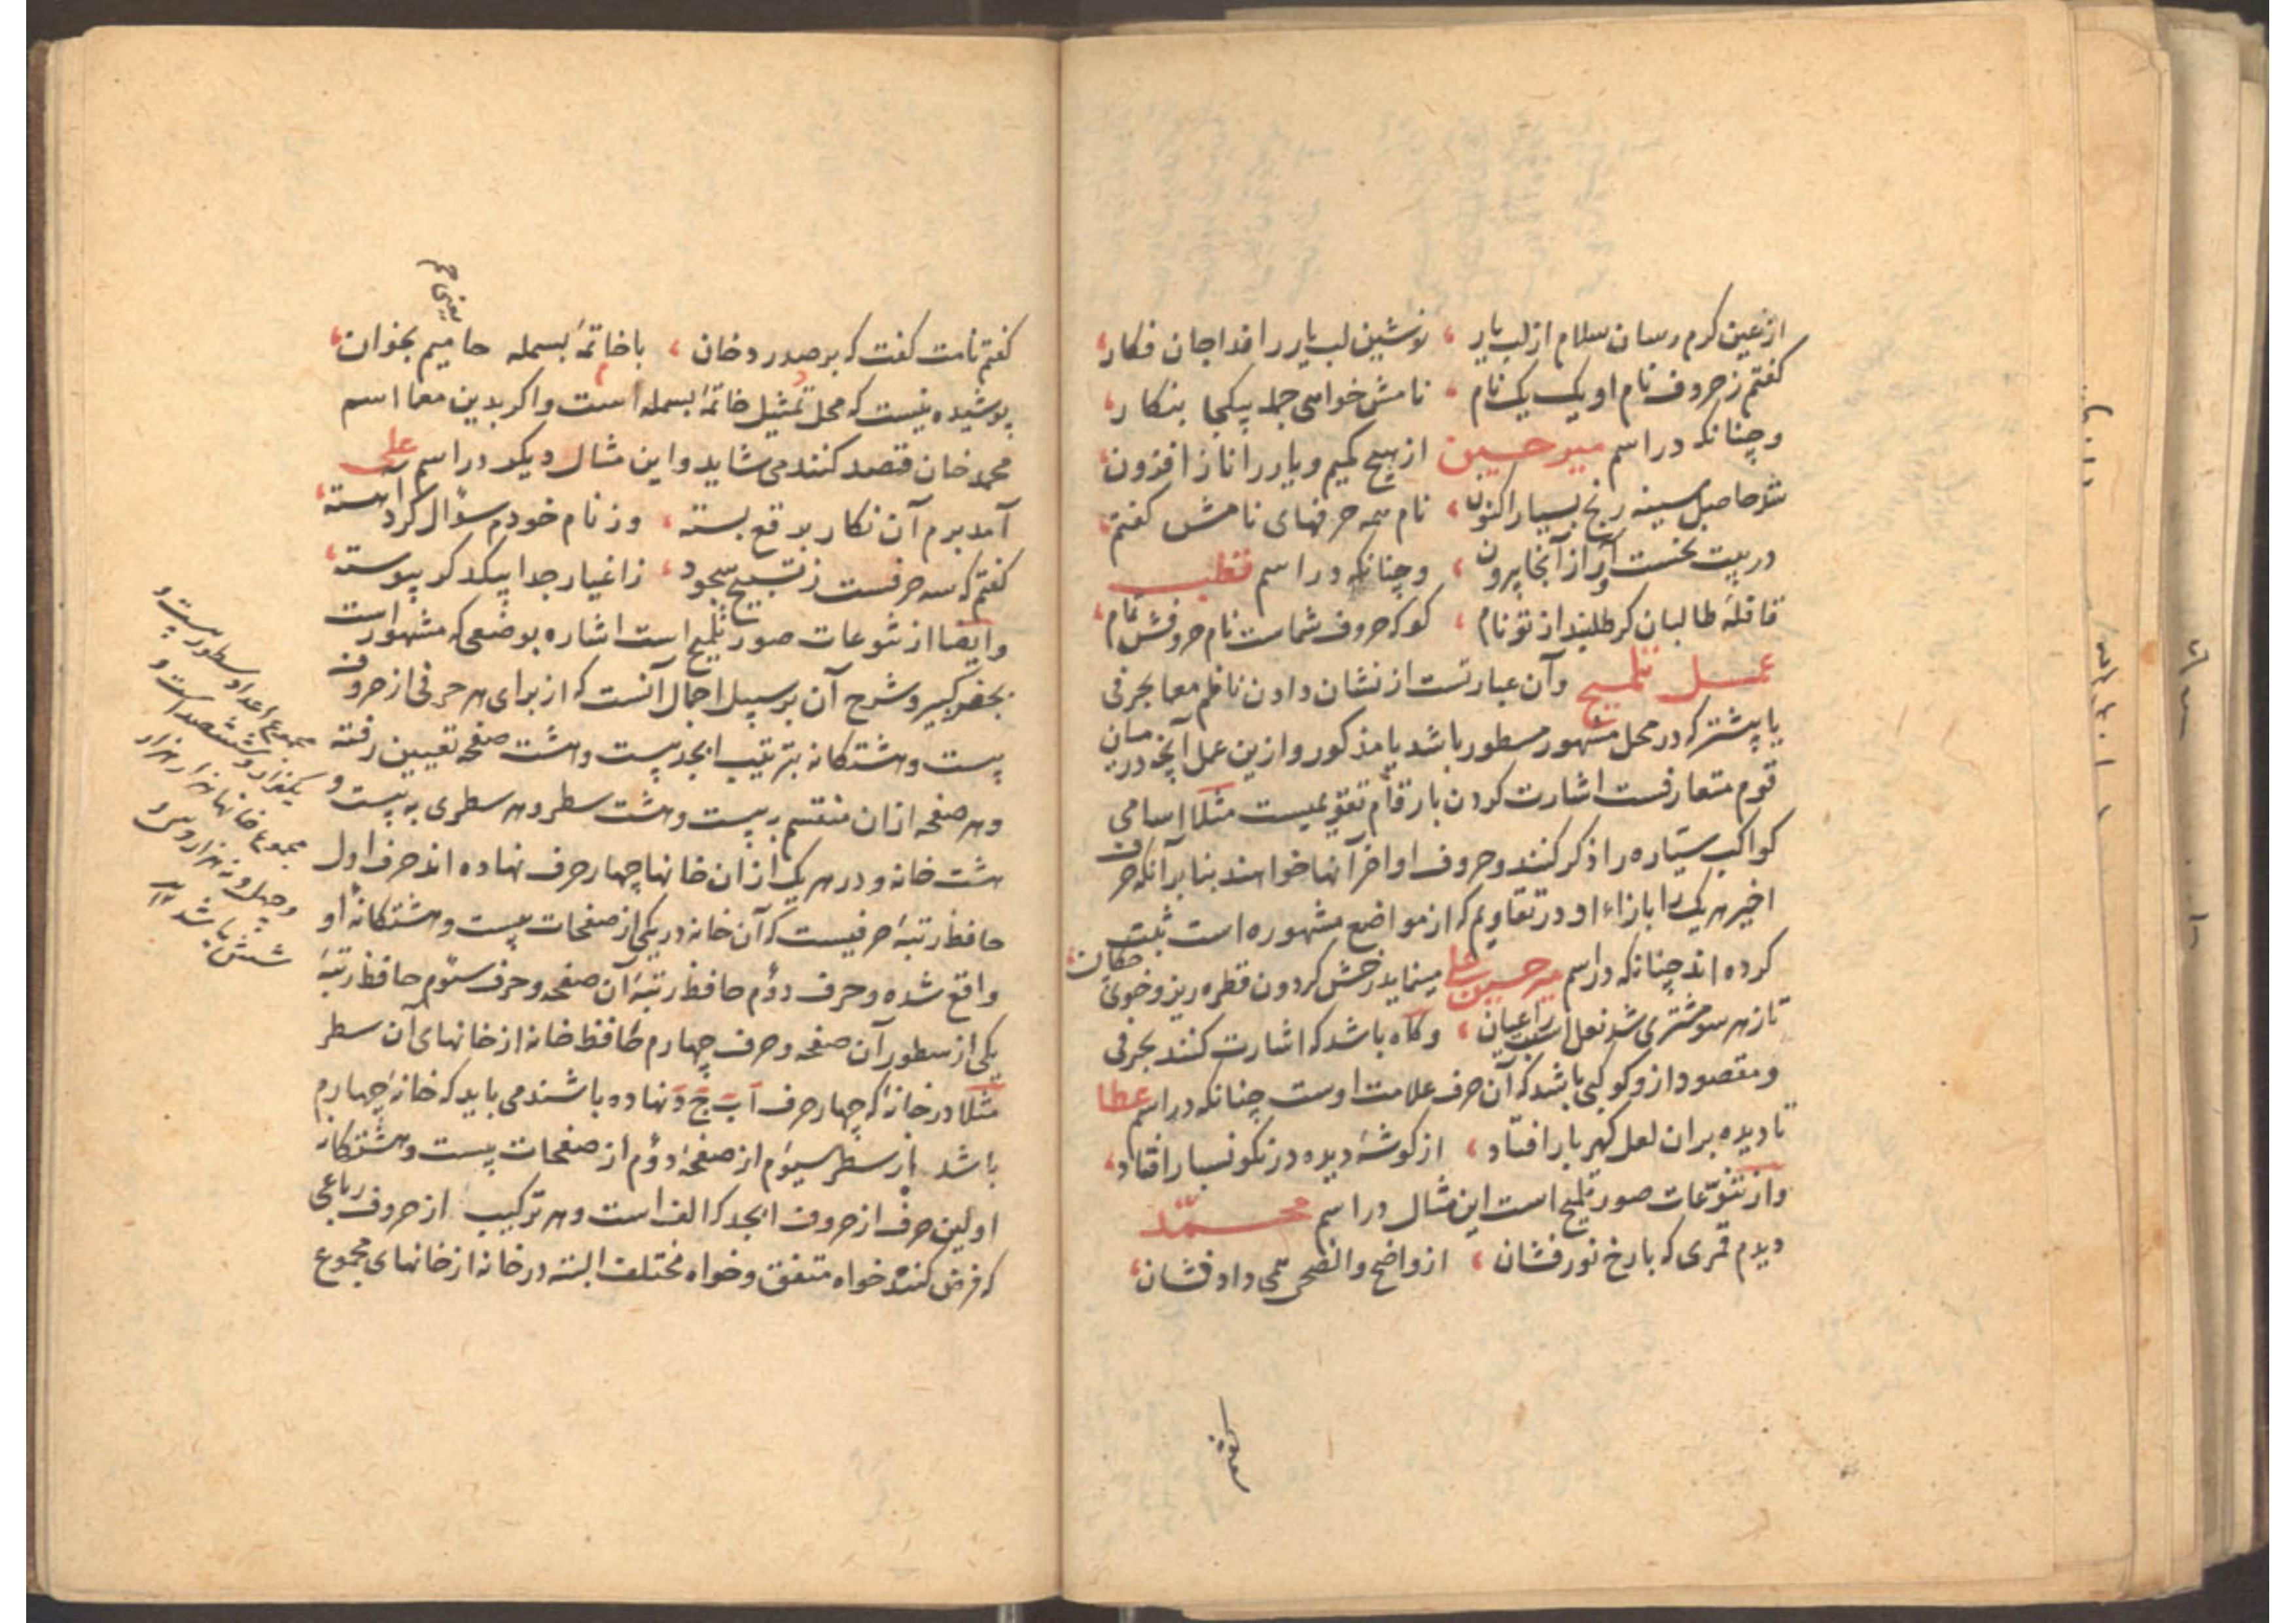 از عین کرم رسان سلام از لب یار ، نوشین لب یار را فدا جان فکار ،
کفتم ز حروف نام او یک یک نام ، نامش خواهی جمله یکجا بنکار ،
و چنانکه در اسم میر حسین از هیچ کمیم و یار را ناز افزون ،
شد حاصل سینه رنج بسیار اکنون ، نام همه حرفهای نامش کفتم ،
در بیت نخست آور از آنجا بیرون ، و چنانکه در اسم قطب
قافلهٔ طالبان کر طلبند از تو نام ، کو که حروف شماست نام حروفش تمام ،
عمل تلمیح وآن عبارتست از نشان دادن ناظم معما بحرفی
یا بیشتر که در محل مشهور مسطور باشد یا مذکور و ازین عمل آنچه در میان
قوم متعارفست اشارت کردن بارقام تقویمیست مثلا اسامی
کواکب سیّاره را ذکر کنند و حروف اواخر آنها خواهند بنا بر آنکه حرف
اخیر هر یک را بازاء او در تقاویم که از مواضع مشهوره است ثبت
کرده اند چنانکه در اسم میر حسین علی مینماید رخش کردون قطره ریز و خوی چکان ،
تا ز هر سو مشتری شد نعل اسبت را عیان ، و کاه باشد که اشارت کنند بحرفی
و مقصود ازو کوکبی باشد که آن حرف علامت اوست چنانکه در اسم عطا
تا دیده بران لعل کهربار افتاد ، از کوشهٔ دیده در نکونسار افتاد ،
و از تنوّعات صور تلمیح است این مثال در اسم محمّد
دیدم قمری که با رخ نور فشان ، از واضح والضحی همی داد نشان ،
کفتم نامت کفت که بر صدر دخان ، با خاتمهٔ بسمله حا میم بخوان ،
پوشیده نیست که محل تمثیل خاتمهٔ بسمله است و اکر بدین معما اسم
محمد خان قصد کنند می شاید و این مثال دیکر در اسم علی
آمد برم آن نکار برقع بسته ، وز نام خودم سؤال کرد آهسته ،
کفتم که سه حرفست ز تسبیح سجود ، ز اغیار جدا بیکدکر پیوسته ،
و ایضا از تنوعات صور تلمیح است اشاره بوضعی که مشهور است
بجفر کبیر و شرح آن بر سبیل اجمال آنست که از برای هر حرفی از حروف
بیست و هشتکانه بترتیب ابجد بیست و هشت صفحه تعیین رفته
و هر صفحه ازان منقسم به بیست و هشت سطر و هر سطری به بیست و
هشت خانه و در هر یک ازان خانها چهار حرف نهاده اند حرف اول
حافظ رتبهٔ حرفیست که آن خانه در یکی از صفحات بیست و هشتکانهٔ او
واقع شده و حرف دؤم حافظ رتبهٔ آن صفحه و حرف سیوم حافظ رتبهٔ
یکی از سطور آن صفحه و حرف چهارم حافظ خانه از خانهای آن سطر
مثلا در خانهٔ که چهار حرف آ ب ج د نهاده باشند می باید که خانهٔ چهارم
باشد از سطر سیوم از صفحهٔ دؤم از صفحات بیست و هشتکانه
اولین حرف از حروف ابجد که الف است و هر ترکیب از حروف رباعی
که فرض کنند خواه متفق و خواه مختلف البته در خانه از خانهای مجموع
مجموع اعداد سطور بیست و
یکهزار و ششصد است و
مجموع خانها هزار هزار
و چهل و نه هزار و سی و
شش باشد